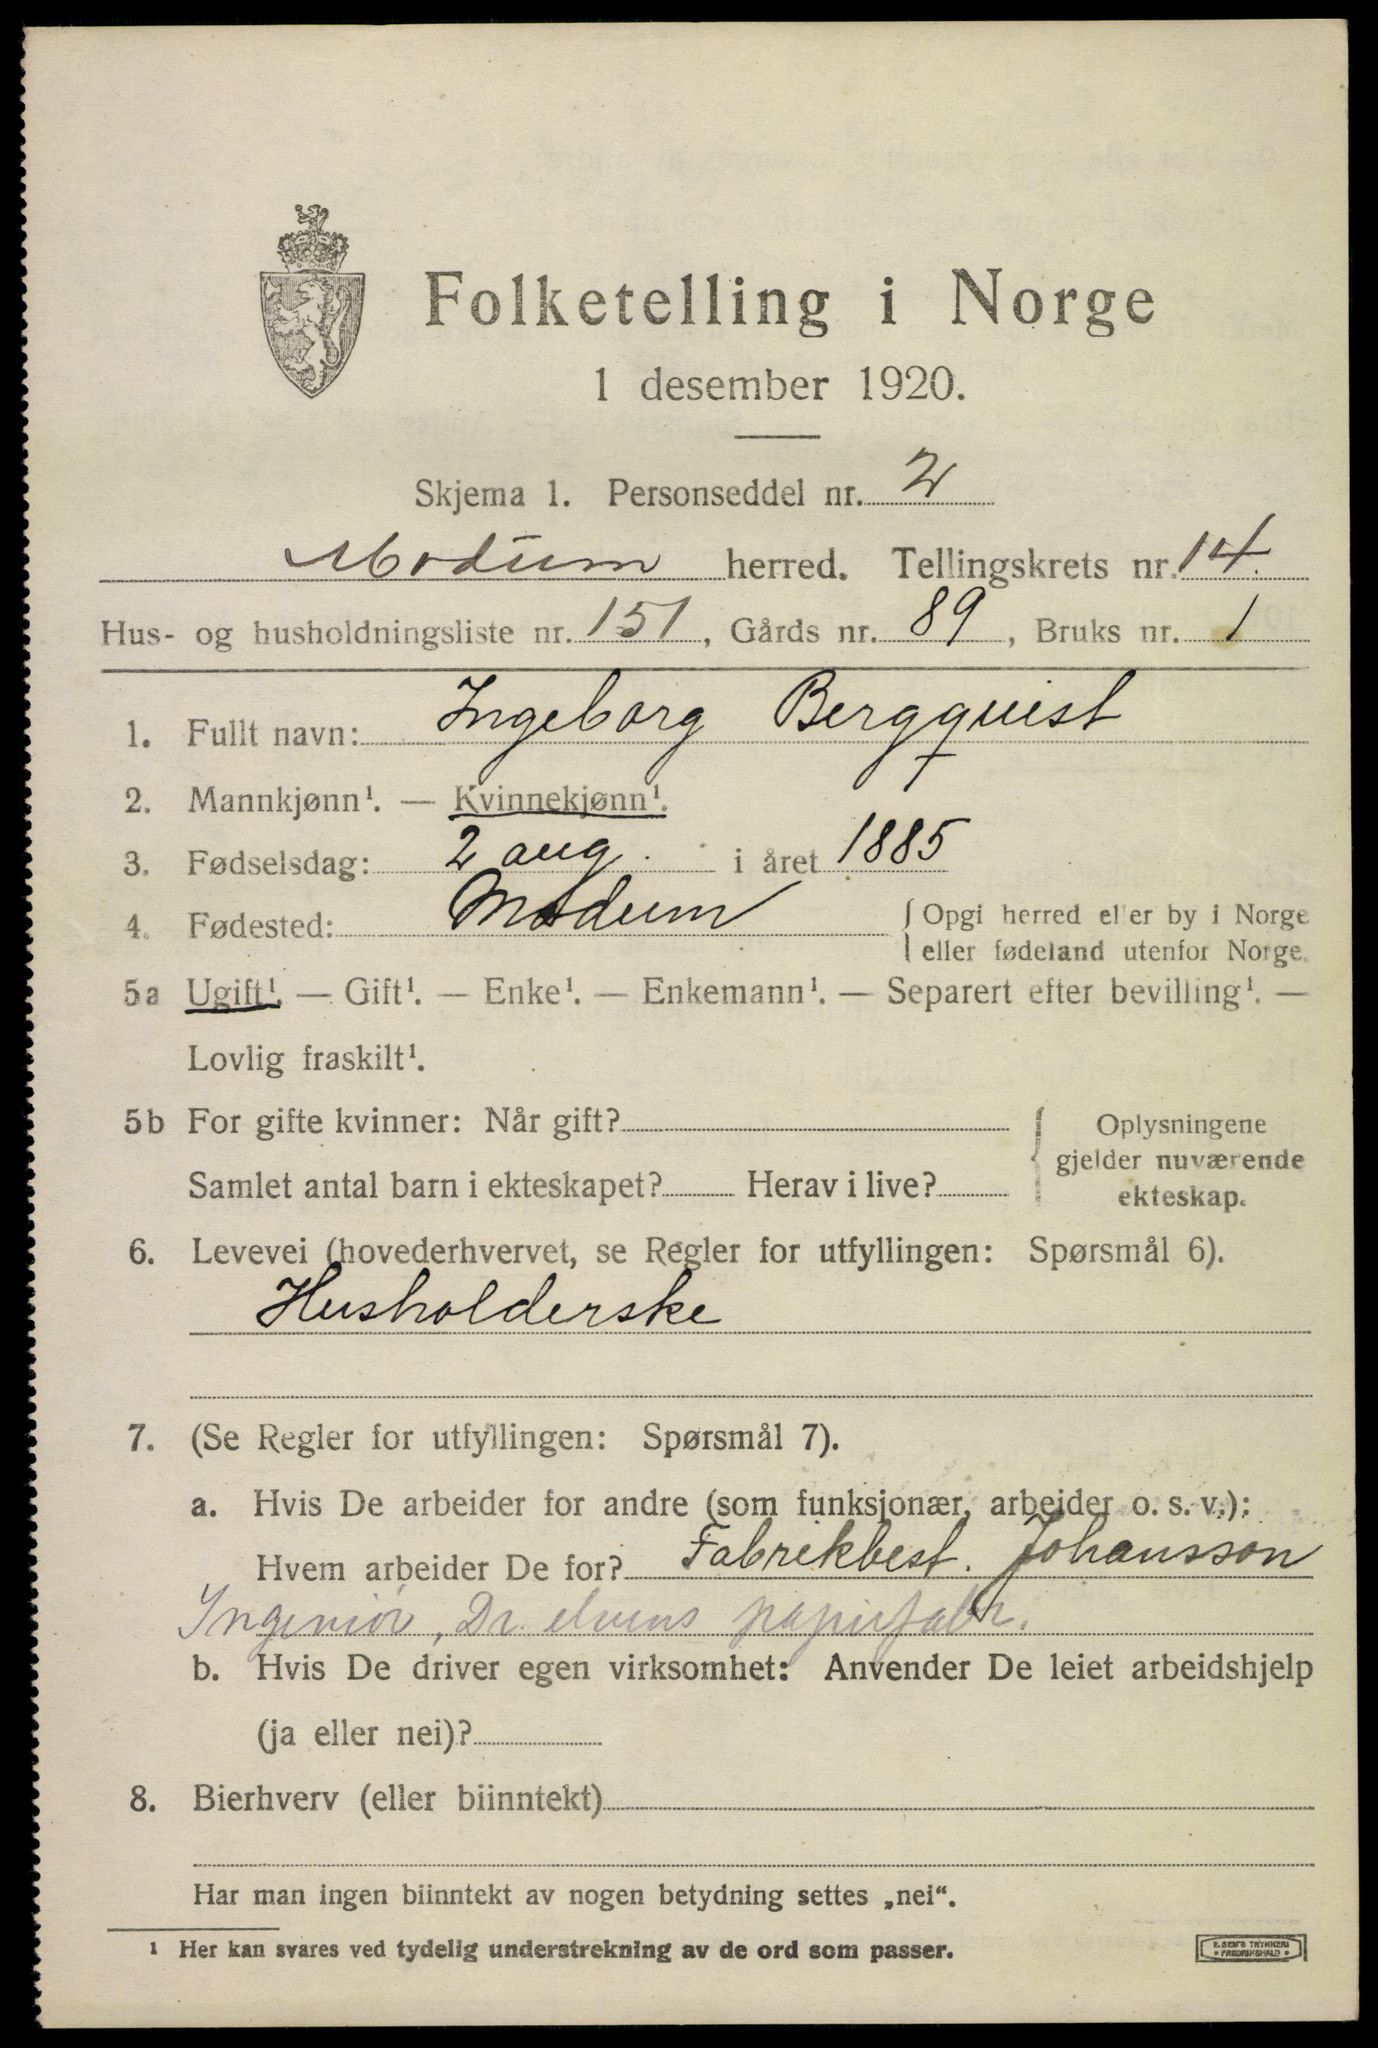 Folketelling i Norge
1 desember 1920.
Skjema 1. Personseddel nr. 2
Modum herred. Tellingskrets nr. 14.
Hus- og husholdningsliste nr. 151, Gårds nr. 89, Bruks nr. 1
1. Fullt navn: Ingeborg Bergquist
2. Mannkjønn¹. — Kvinnekjønn¹.
3. Fødselsdag: 2 aug. i året 1885
4. Fødested: Modum
Opgi herred eller by i Norge
eller fødeland utenfor Norge.
5a Ugift¹. — Gift¹. — Enke¹. — Enkemann¹. — Separert efter bevilling¹. —
Lovlig fraskilt¹.
5b For gifte kvinner: Når gift?
Samlet antal barn i ekteskapet? Herav i live?
Oplysningene
gjelder nuværende
ekteskap.
6. Levevei (hovederhvervet, se Regler for utfyllingen: Spørsmål 6).
Husholderske
7. (Se Regler for utfyllingen: Spørsmål 7).
a. Hvis De arbeider for andre (som funksjonær, arbeider o. s. v.):
Hvem arbeider De for? Fabrikbest. Johansson
Ingeniør, Dr. elvens papirfabr.
b. Hvis De driver egen virksomhet: Anvender De leiet arbeidshjelp
(ja eller nei)?
8. Bierhverv (eller biinntekt)
Har man ingen biinntekt av nogen betydning settes „nei“.
¹ Her kan svares ved tydelig understrekning av de ord som passer.
E. SEM'S TRYKKERI
• FREDRIKSHALD •